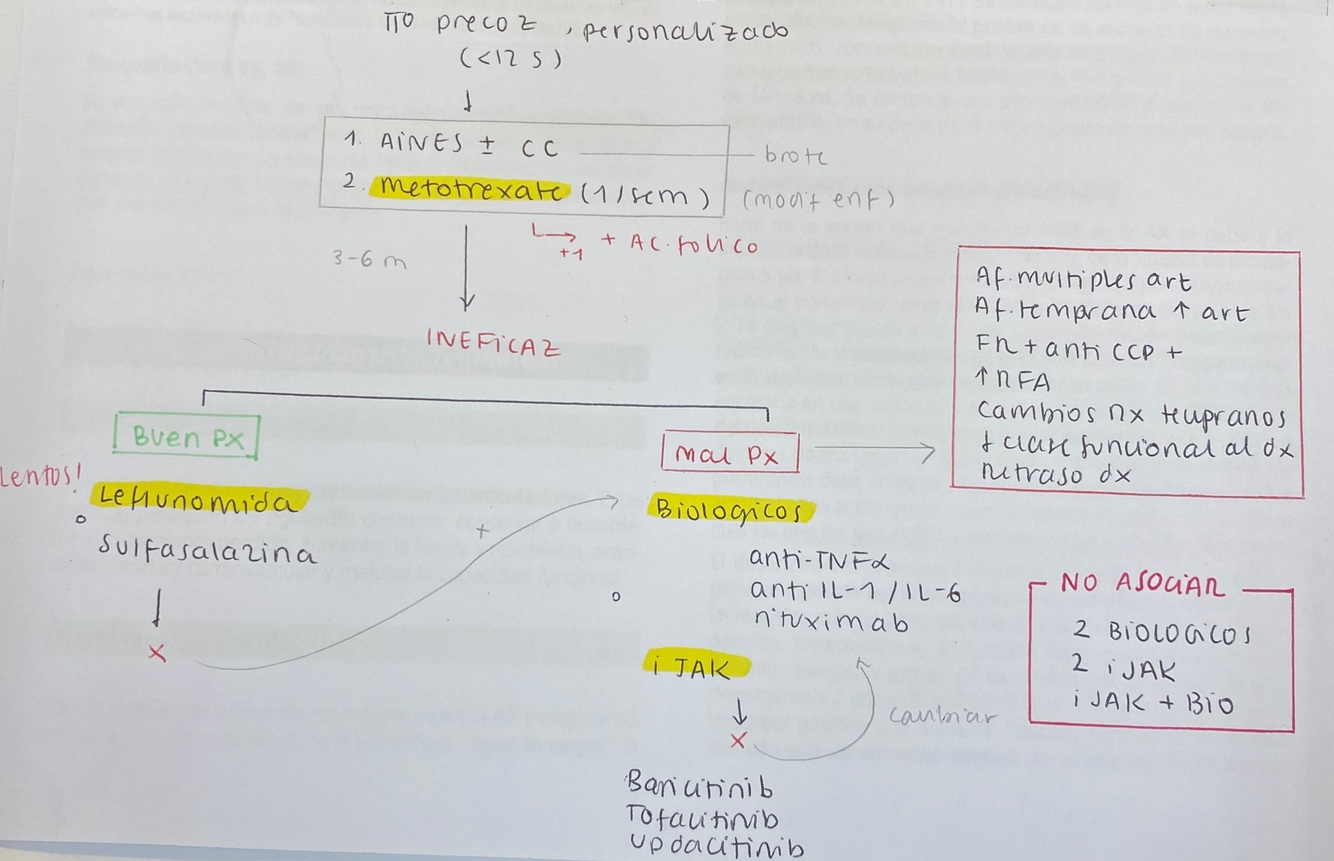 TTO precoz, personalizado
(<12 s)
↓
1. AINES ± CC — brote
2. metotrexate (1/sem) (modif enf)
↳ +1 + AC. folico
3-6 m
INEFICAZ
Buen Px
Lentos!
Leflunomida
o
sulfasalazina
↓
x
+
Mal Px →
Af. multiples art
Af. temprana ↑ art
FR + anti CCP +
↑ RFA
cambios rx tempranos
↓ clase funcional al dx
retraso dx
Biologicos
anti-TNFα
anti IL-1 / IL-6
rituximab
o
i JAK
↓
x
cambiar
Baricitinib
Tofacitinib
Updacitinib
NO ASOCIAR
2 BIOLOGICOS
2 i JAK
i JAK + BIO